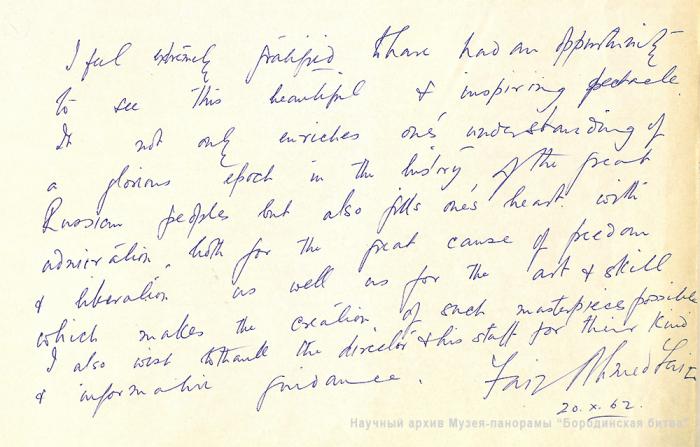 I feel extremely gratified to have had an opportunity
to see this beautiful & inspiring spectacle.
It not only enriches one's understanding of
a glorious epoch in the history of the great
Russian peoples but also fills one's heart with
admiration, both for the great cause of freedom
& liberation as well as for the art & skill
which makes the creation of such masterpieces possible
I also wish to thank the director & his staff for their kind
& informative guidance.
Faiz Ahmed Faiz
20.x.62.
Научный архив Музея-панорамы "Бородинская битва"